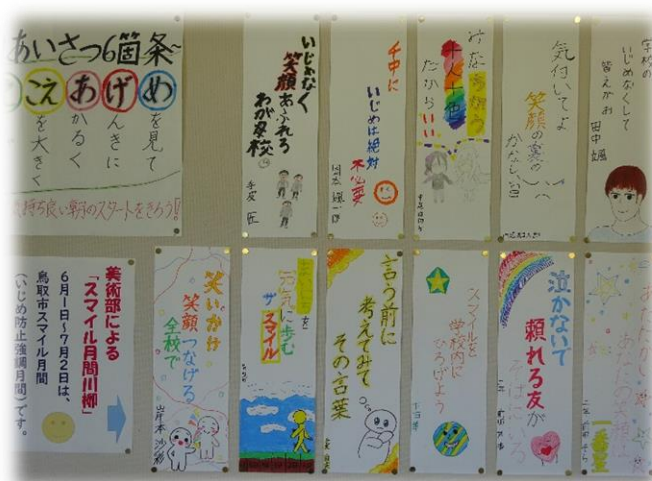 あいさつ6箇条~
こえあげめ
を見て
んきに
かるく
を大きく
持ち良い朝のスタートをきろう!
いじめなく
笑顔あふれる
わが母校
千中に
いじめは絶対
不必要
みなちがう
十人十色
だからいい
気付いてよ
笑顔の裏の
学校の
いじめなくして
皆えがお
美術部による
「スマイル月間川柳」
6月1日~7月2日は、
鳥取市スマイル月間
(いじめ防止強調月間)です。
笑いかけ
笑顔つなげる
全校で
山岸本沙彩
元気に歩む
ザスマイル
言う前に
考えてみて
その言葉
スマイルを
学校内に
ひろげよう
泣かないで
頼れる友が
そばにいる
一番星